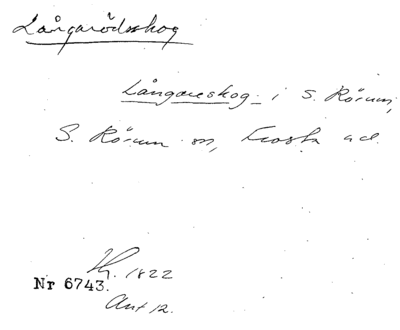 Långarödsskog
Långareskog i S. Rörum,
S. Rörum sn, Frosta hd.
Kh. 1822
Nr 6743.
Avt 12.